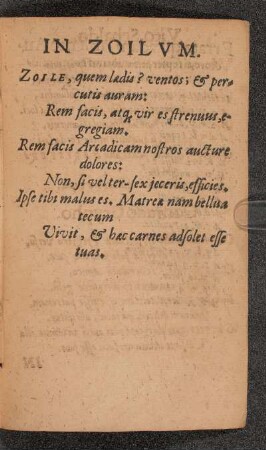 IN ZOILVM.
ZOILE, quem lædis? ventos; & per-
cutis auram:
Rem facis, atq; vir es strenuus, e-
gregiam.
Rem facis Arcadicam nostros aucture
dolores:
Non, si vel ter-sex jeceris, efficies.
Ipse tibi malus es. Matrea nam bellua
tecum
Vivit, & hæc carnes adsolet esse
tuas.
IN